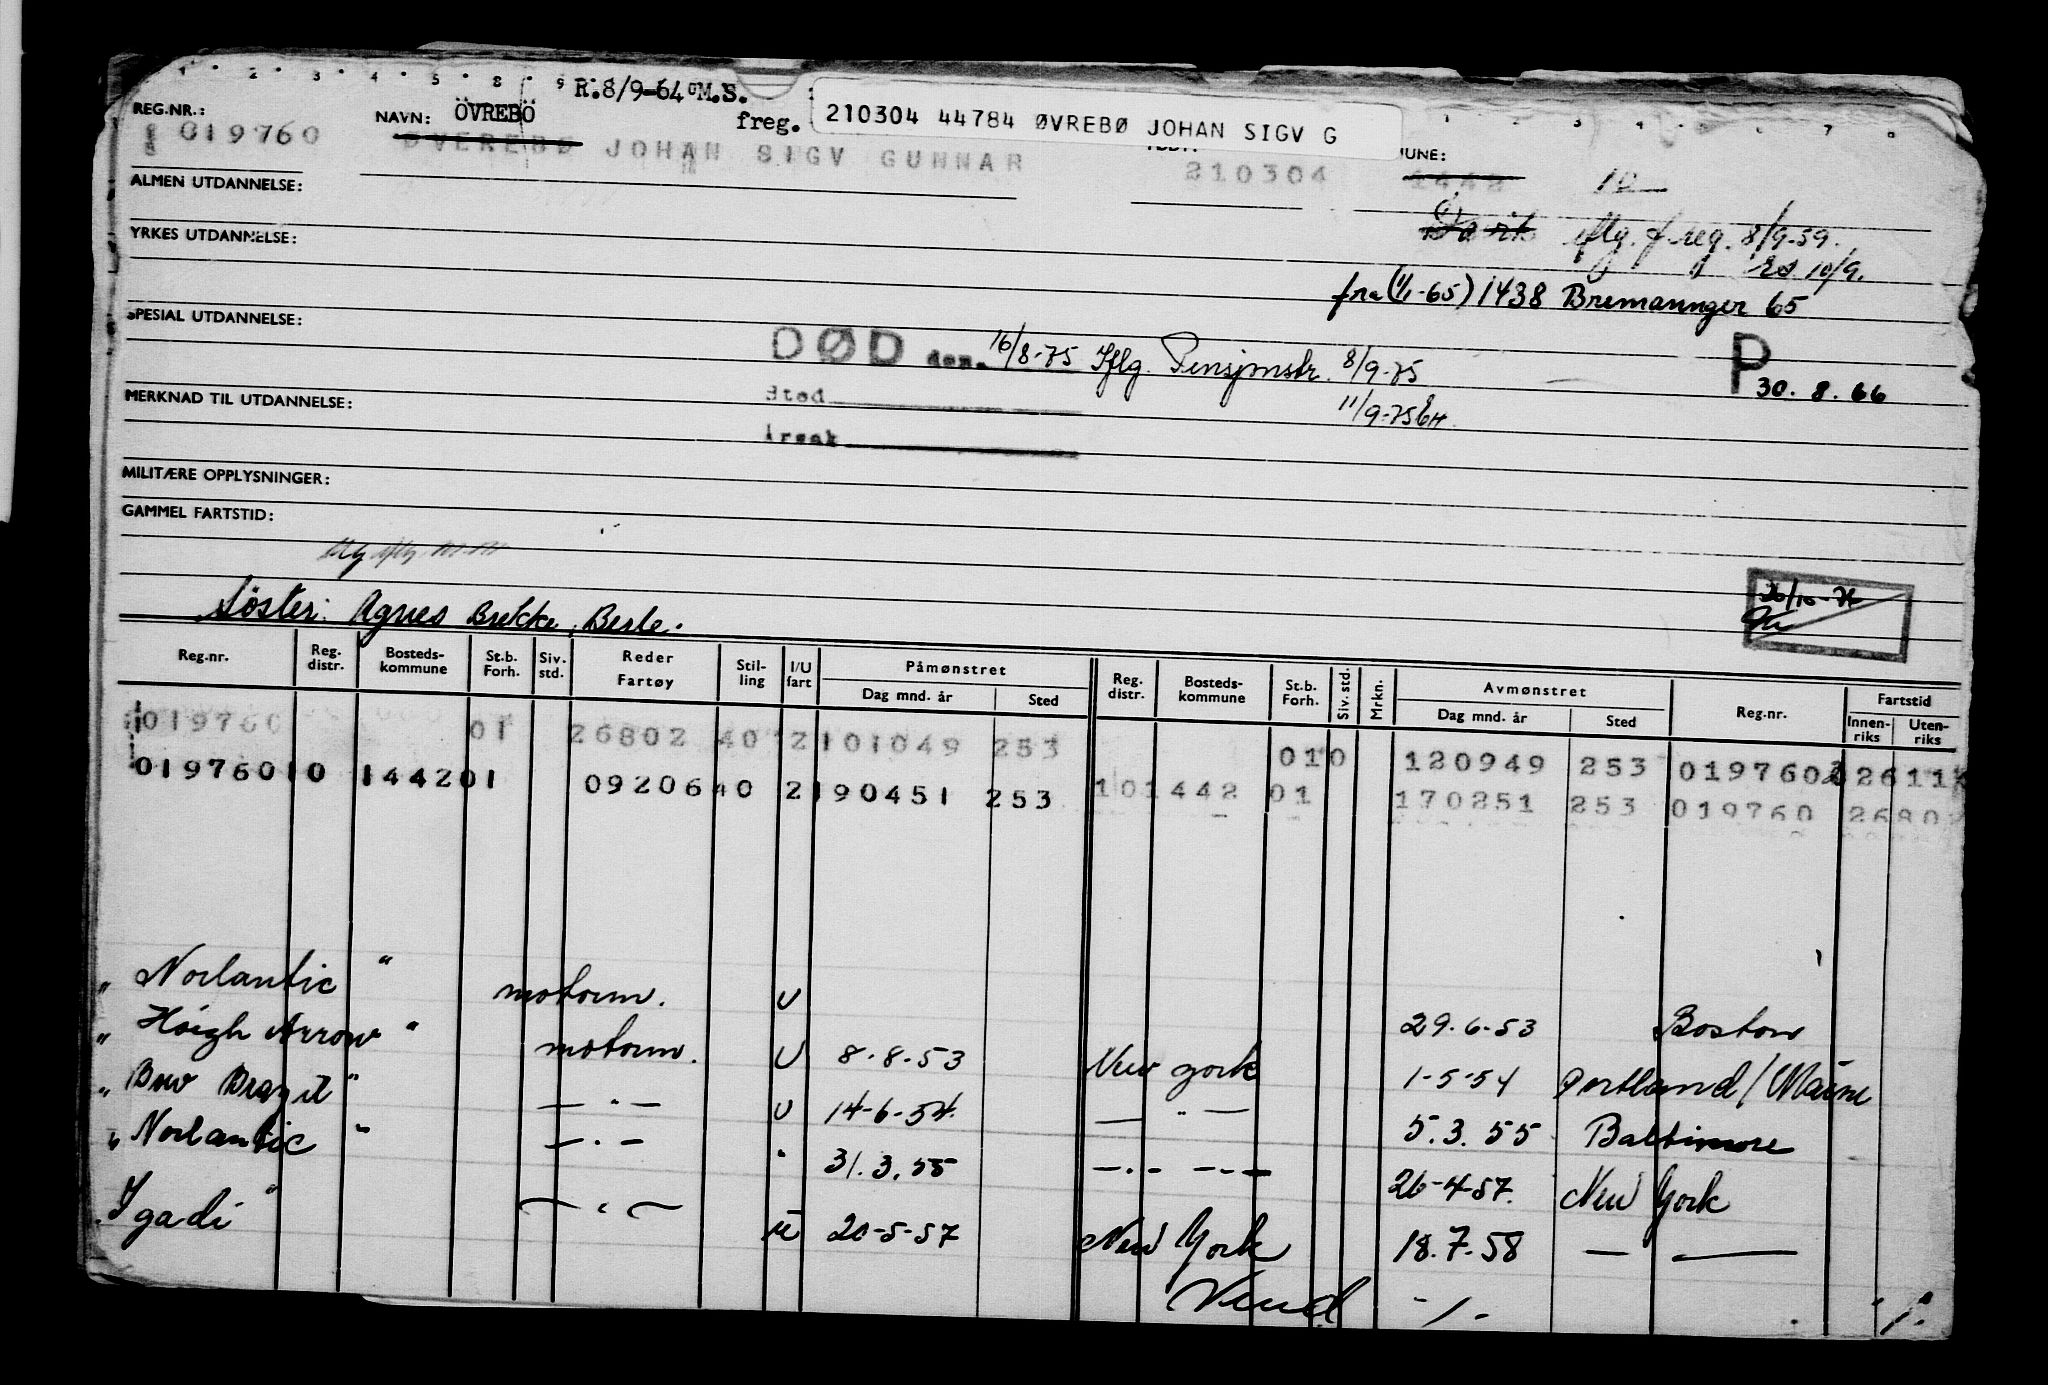 1 · 2 · 3 · 4 · 5 · 8 · 9 R.8/9-64 M.S.
REG.NR.: 019760 NAVN: ÖVREBÖ freg. 210304 44784 ØVREBØ JOHAN SIGV G
ØVEREBØ JOHAN SIGV GUNNAR 210304 1442
MUNE:
ALMEN UTDANNELSE:
iflg. f.reg. 8/9-59.
10/9.
YRKES UTDANNELSE:
fra (1/1-65) 1438 Bremannger 65
SPESIAL UTDANNELSE:
DØD den. 16/8-75 Iflg. Pensjonstr. 8/9-75
P 30. 8. 66
Sted
11/9-75
MERKNAD TIL UTDANNELSE:
Årsak
MILITÆRE OPPLYSNINGER:
GAMMEL FARTSTID:
Söster: Agnes Brekke, Berle.
Reg.nr. Reg. distr. Bosteds-kommune St.b. Forh. Siv. std. Reder Fartøy Stil-ling I/U fart Påmønstret Dag mnd. år Sted Reg. distr. Bosteds-kommune St.b. Forh. Siv. std. Mrkn. Avmønstret Dag mnd. år Sted Reg.nr. Fartstid Innen-riks Uten-riks
019760 01 26802 40 2 101049 253 010 120949 253 019760 2611
019760 10 1442 01 09206 40 2 190451 253 10 1442 01 170251 253 019760 2680
" Norlantic " motorm. U 29.6-53 Boston
" Höigh Arrow " motorm. U 8-8-53 New York 1-5-54 Portland/Maine
" Bow Brazil " — " — U 14-6-54. — " — 5.3.55 Baltimore
" Norlantic " — " — " 31.3.55 — " — 26-4-57. New York
" Igadi " — " — U 20-5-57 New York 18.7-58 — —
Vend -/-